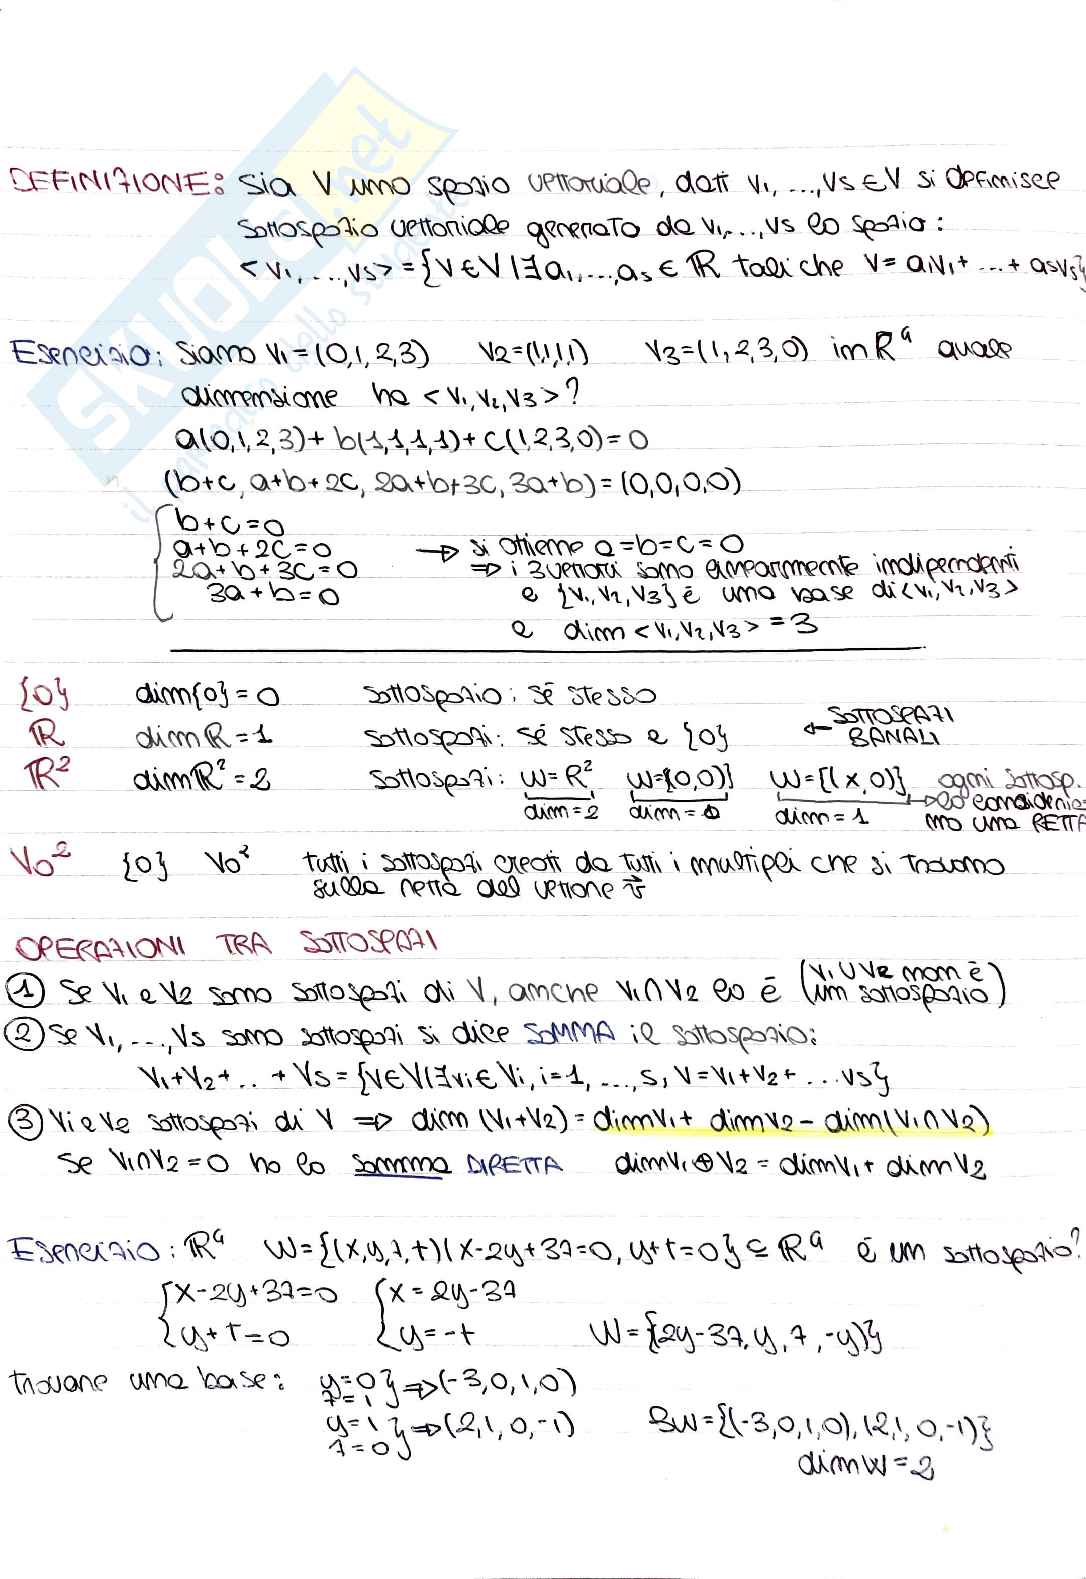 DEFINIZIONE: Sia V uno spazio vettoriale, dati v₁, ..., vs ∈ V si definisce
sottospazio vettoriale generato da v₁,...,vs lo spazio:
<v₁,...,vs> = {v ∈ V | ∃ a₁,...,as ∈ ℝ tali che v = a₁v₁ + ... + asvs}
Esercizio: Siano v₁=(0,1,2,3) v₂=(1,1,1,1) v₃=(1,2,3,0) in ℝ⁴ quale
dimensione ha <v₁,v₂,v₃>?
a(0,1,2,3)+b(1,1,1,1)+c(1,2,3,0)=0
(b+c, a+b+2c, 2a+b+3c, 3a+b)=(0,0,0,0)
b+c=0
a+b+2c=0 → si ottiene a=b=c=0
2a+b+3c=0 ⇒ i 3 vettori sono linearmente indipendenti
3a+b=0 e {v₁,v₂,v₃} è una base di <v₁,v₂,v₃>
e dim <v₁,v₂,v₃> = 3
{0} dim{0}=0 sottospazio: sé stesso
ℝ dimℝ=1 sottospazi: sé stesso e {0} ← SOTTOSPAZI BANALI
ℝ² dimℝ²=2 sottospazi: W=ℝ² W={0,0)} W={(x,0)} ogni sottosp.
dim=2 dim=0 dim=1 → lo consideria
mo una RETTA
V₀² {0} V₀² tutti i sottospazi creati da tutti i multipli che si trovano
sulla retta del vettore v⃗
OPERAZIONI TRA SOTTOSPAZI
① Se V₁ e V₂ sono sottospazi di V, anche V₁∩V₂ lo è (V₁∪V₂ non è un sottospazio)
② Se V₁,...,Vs sono sottospazi si dice SOMMA il sottospazio:
V₁+V₂+..+Vs={v∈V|∃vi∈Vi, i=1,...,s, v=v₁+v₂+...vs}
③ V₁ e V₂ sottospazi di V ⇒ dim(V₁+V₂)=dimV₁+dimV₂-dim(V₁∩V₂)
Se V₁∩V₂=0 ho la somma DIRETTA dimV₁⊕V₂=dimV₁+dimV₂
Esercizio: ℝ⁴ W={(x,y,z,t)|x-2y+3z=0, y+t=0}⊆ℝ⁴ è un sottospazio?
{x-2y+3z=0 {x=2y-3z
{y+t=0 {y=-t W={2y-3z,y,z,-y)}
trovare una base: y=0
z=1} ⇒ (-3,0,1,0)
y=1
z=0} ⇒ (2,1,0,-1) BW={(-3,0,1,0),(2,1,0,-1)}
dimW=2